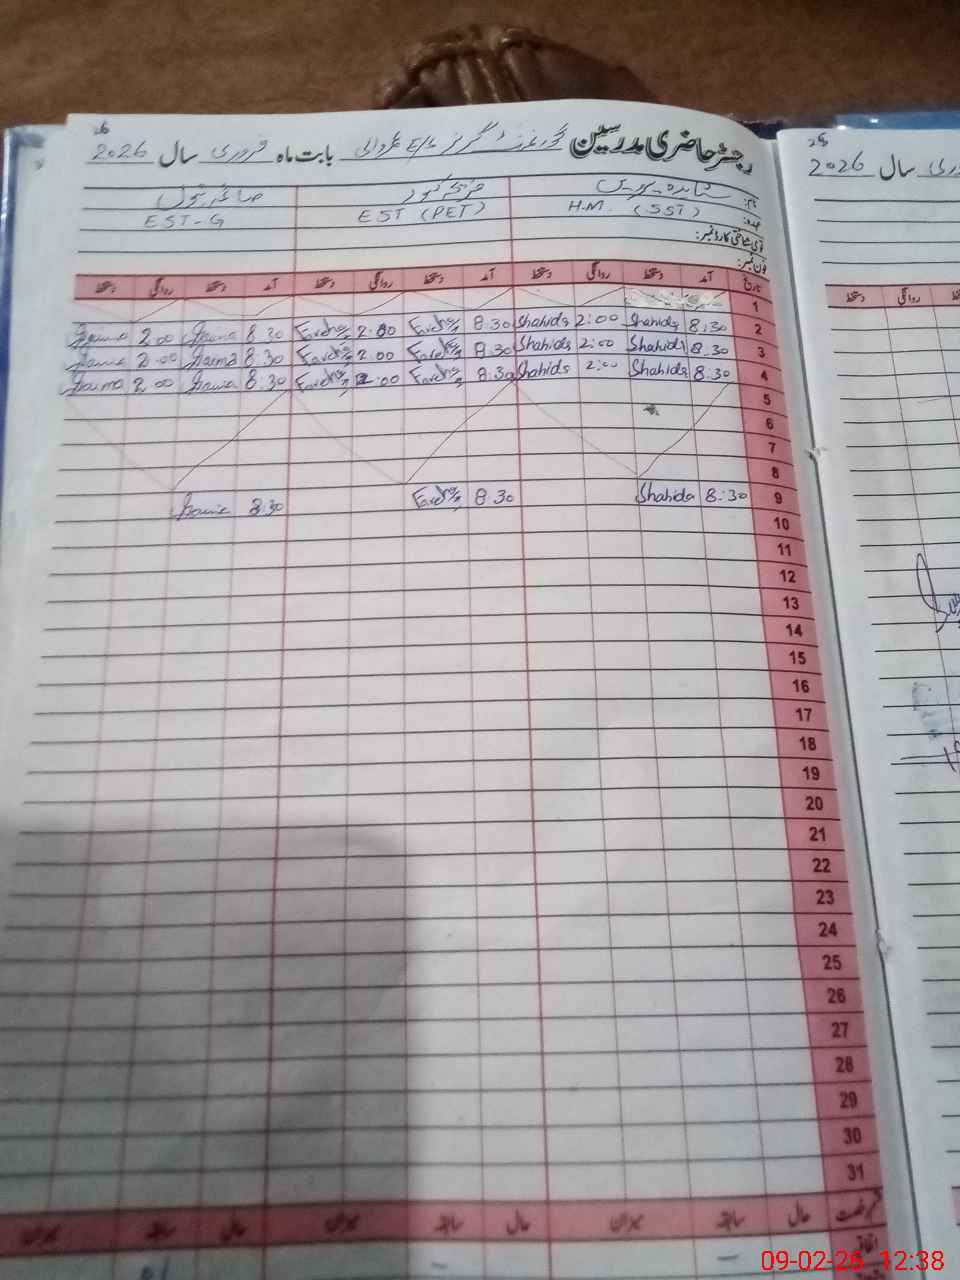 رجسٹر حاضری مدرسین گورنمنٹ گرلز E/S بابت ماہ فروری سال 2026
نام: شاہدہ پروین
عہدہ: H.M. (SST) EST (PET) EST-G
قومی شناختی کارڈ نمبر:
فون نمبر:
تاریخ آمد دستخط روانگی دستخط آمد دستخط روانگی دستخط آمد دستخط روانگی دستخط
1
2 8:30 Shahida 2:00 Shahida 8 30 2:00 8 30 2 00
3 8:30 Shahida 2:00 Shahida 8 30 2:00 8 30 2:00
4 8:30 Shahida 2:00 Shahida 8 30 2:00 8:30 2 00
5
6
7
8
9 8:30 Shahida 8 30 8 30
10
11
12
13
14
15
16
17
18
19
20
21
22
23
24
25
26
27
28
29
30
31
رخصت حال سابقہ میزان حال سابقہ میزان حال سابقہ میزان
اتفاقیہ
2026 سال
روانگی دستخط
09-02-26 12:38